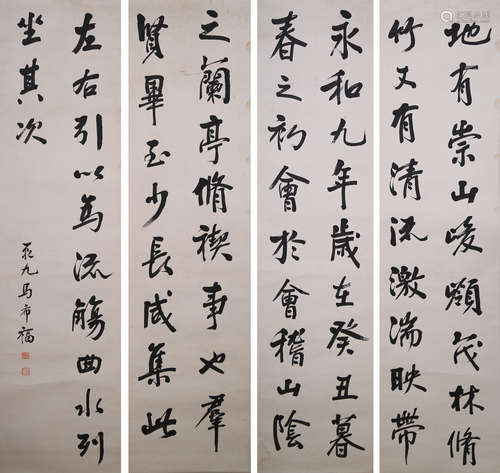 地有崇山峻領茂林脩
竹又有清流激湍映帶
永和九年歲在癸丑暮
春之初會於會稽山陰
之蘭亭脩禊事也羣
賢畢至少長咸集此
左右引以為流觴曲水列
坐其次
九馬希福